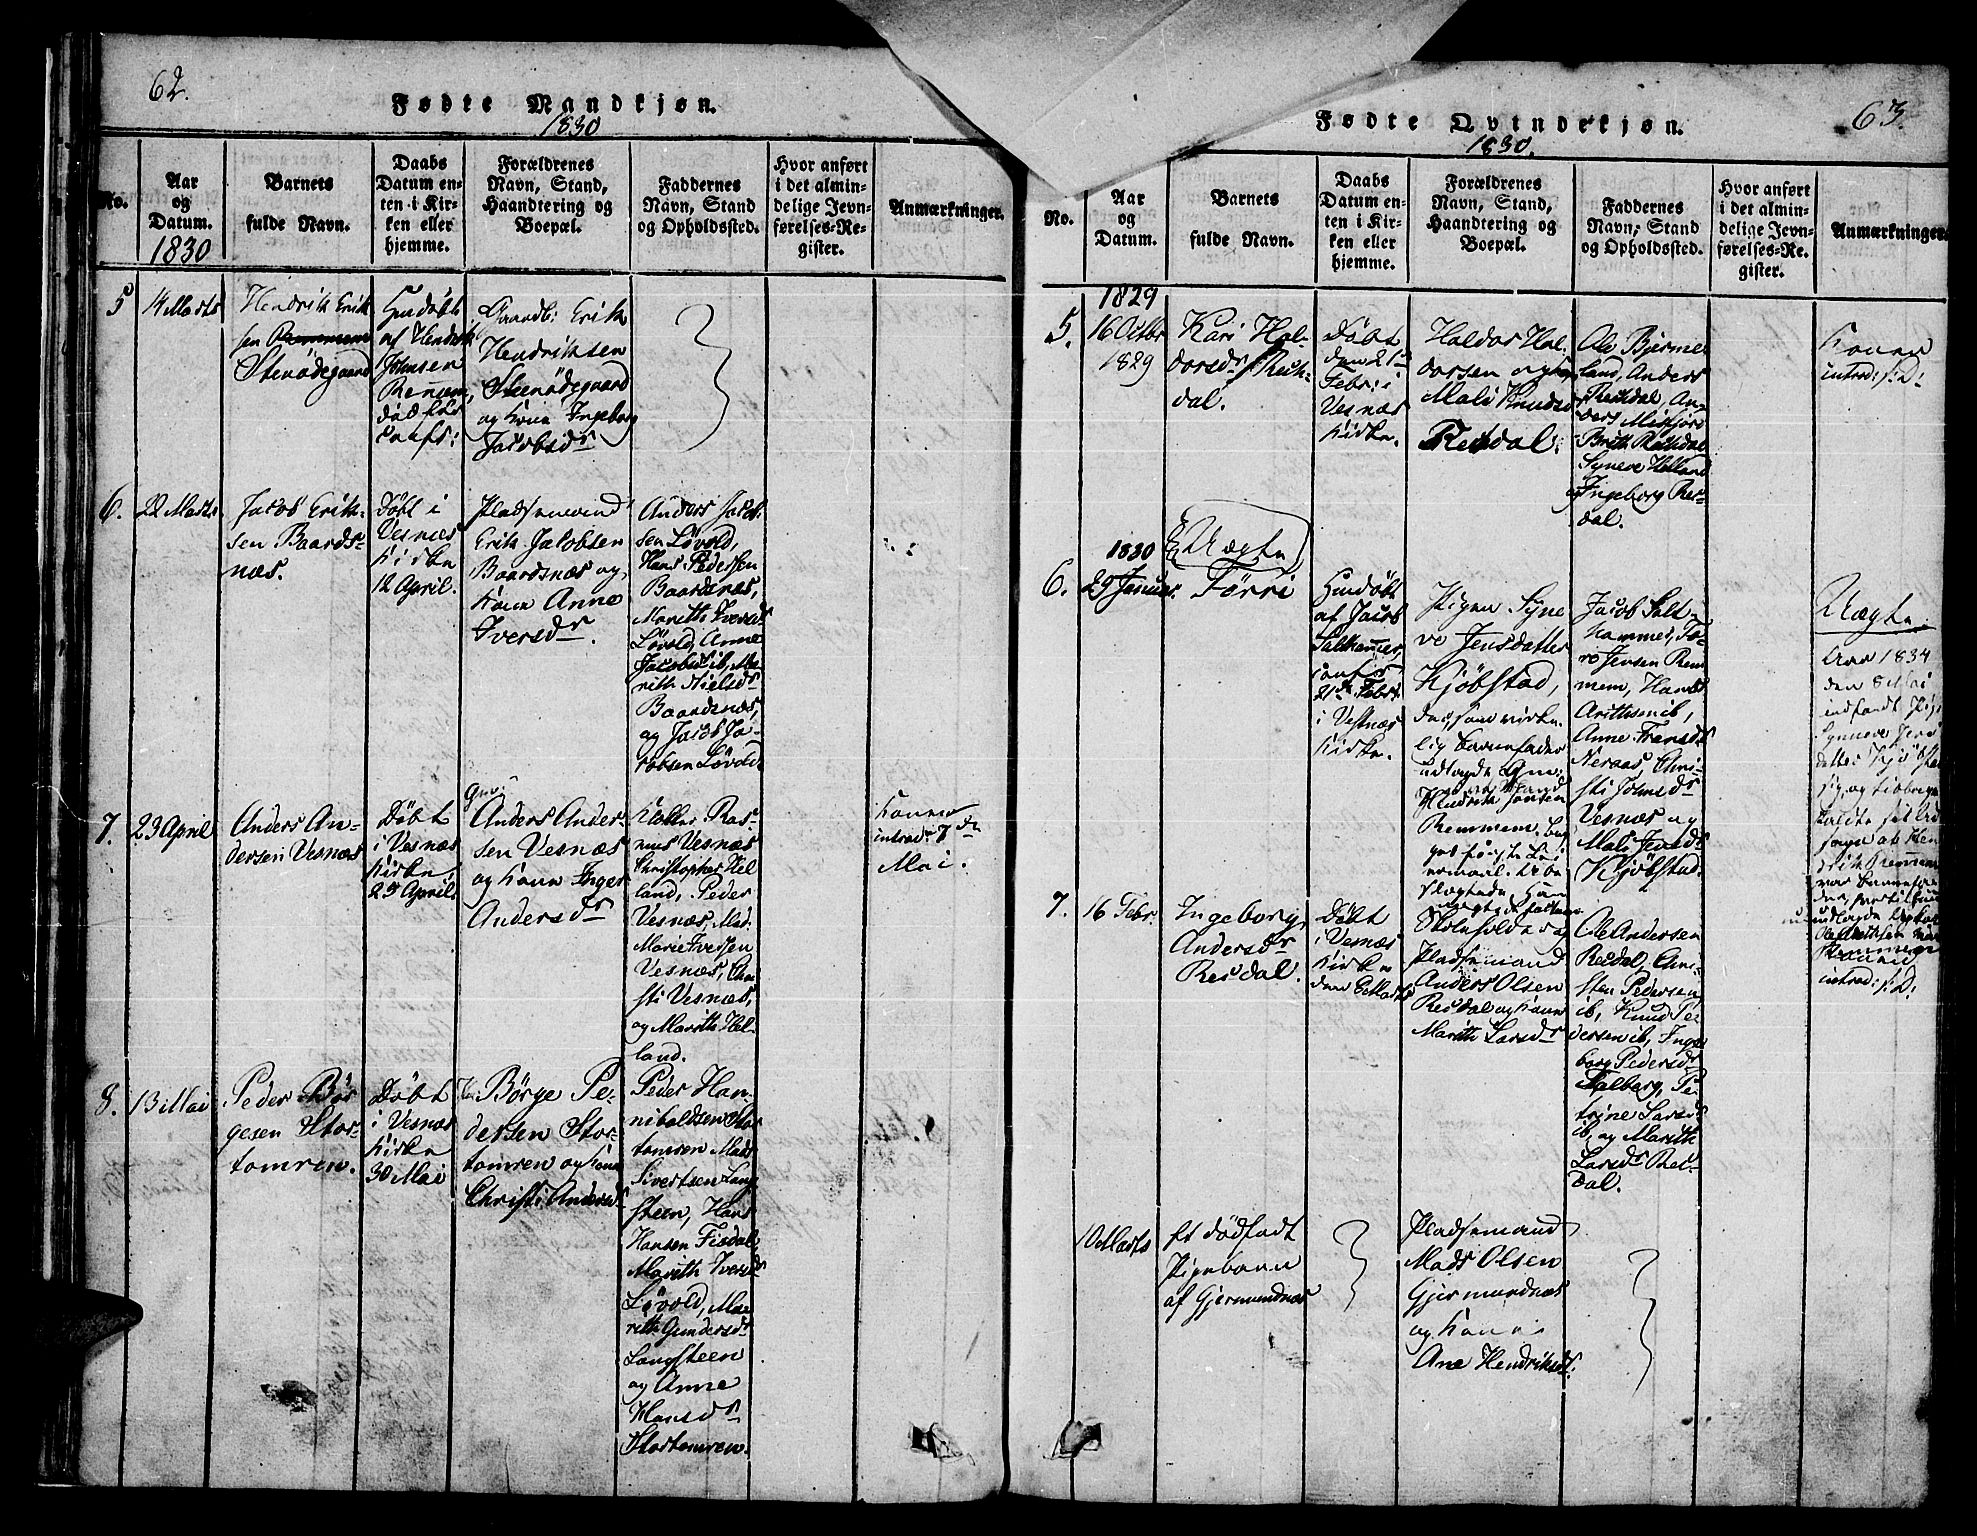 62.
Fødte Mandkjøn.
1830
No.
Aar
og
Datum.
1830
Barnets
fulde Navn.
Daabs
Datum en-
ten i Kir-
ken eller
hjemme.
Forældrenes
Navn, Stand,
Haandtering og
Boepæl.
Faddernes
Navn, Stand
og Opholdssted.
Hvor anført
i det almin-
delige Jevn-
førelses-Re-
gister.
Anmærkninger.
5
14 Marts
Hendrik Erik
sen Remmem
Stenødegaard
Hjmdøbt
af Hendrik
Johnsen
Remmem,
død før
Gaardb: Erik
Hendriksen
Steenødegaard
og Kone Ingeborg
Jacobsdr
6.
22 Marts
Jacob Erik-
sen Baards-
næs.
Døbt i
Vesnæs
Kirke
12 April.
Pladsemand
Erik Jacobsen
Baardsnæs og
Kone Anne
Iversdr.
Anders Jacob
sen Løvold,
Hans Pedersen
Baardsnæs,
Marith Iversdr
Løvold, Anne
Jacobsd ib, Ma-
rith Nielsdr
Baardsnæs,
og Jacob Ja-
cobsen Løvold.
7.
23 April
Anders An-
dersen Vesnæs
Døbt
i Vesnæs
Kirke
25 April.
Gm:
Anders Ander-
sen Vesnæs
og Kone Inger
Andersdr
Klokker Ras-
mus Vesnæs
Christopher Hel
land, Peder
Vesnæs, Mad:
Marie Iversen
Vesnæs, Chri
sti Vesnæs,
og Marith Hel-
land.
Konen
introd: 7 de
Mai.
8.
13 Mai
Peder Bør
gesen Stor-
tomren.
Døbt
i Vesnæs
Kirke
30 Mai
Børge Pe-
dersen Stor-
tomren og Kone
Christi Andersdr
Peder Han-
nibaldsen Stor
tomren Mads
Sivertsen Lang
steen, Hans
Hansen Fisdal
Marith Iversdr
Løvold, Ma-
rith Gundersdr
Langsteen
og Anne
Hansdr
Stortomren.
63.
Fødte Qvindekjøn.
1830.
No.
Aar
og
Datum.
Barnets
fulde Navn.
Daabs
Datum en-
ten i Kir-
ken eller
hjemme.
Forældrenes
Navn, Stand,
Haandtering og
Boepæl.
Faddernes
Navn, Stand
og Opholdssted.
Hvor anført
i det almin-
delige Jevn-
førelses-Re-
gister.
Anmærkninger.
5.
1829
16 Octbr
1829
Kari Hal-
dorsdr Rech-
dal.
Døbt
den 21de
Febr: i
Vesnæs
Kirke.
Haldor Hal-
dorsen og Kone
Mali Knudsd
Resdal.
Ole Bjerme
land, Anders
Resdal, An-
ders Misfjord
Brith Rechdal
Syneve Helland
og Ingeborg Res-
dal.
Konen
introd: s: D:
6.
1830
29 Januar.
Uægte
Tørri
Hjmdøbt
af Jacob
Salthammer
21de Febr.
i Vestnæs
Kirke.
Pigen Syne
ve Jensdatter
Kjøbstad,
der som virke-
lig Barnefader
udlagde
Hendrik Jonsen
Remmem
Jacob Salt-
hammer, To-
re Jensen Rem
mem, Hans
Arithsen ib,
Anne Fransdr
Neraas, Chri-
sti Johnsdr
Vesnæs og
Mali Jensdr
Kjøbstad.
Uægte.
Aar 1834
den 8 Mai
indfandt Pigen
Synneve Jens
datter Kjøbstad
sig, og
7.
16 Febr:
Ingeborg
Andersdr
Resdal.
Døbt
i Vesnæs
Kirke
den 8 Marts
Skoleholder og
Pladsemand
Anders Olsen
Resdal og Kone
Marith Larsdr
Ole Andersen
Resdal, Chri-
sten Pedersen
ib, Knud Pe-
dersen ib, Inge
borg Pedersdr
Talberg, Pe-
trine Larsdr
ib, og Marith
Larsdr Res-
dal.
introd: s: D:
10 Marts
Et dødfødt
Pigebarn
af Gjermundnæs
Pladsemand
Mads Olsen
Gjermundnæs
og Kone
Ane Hendriksdr.